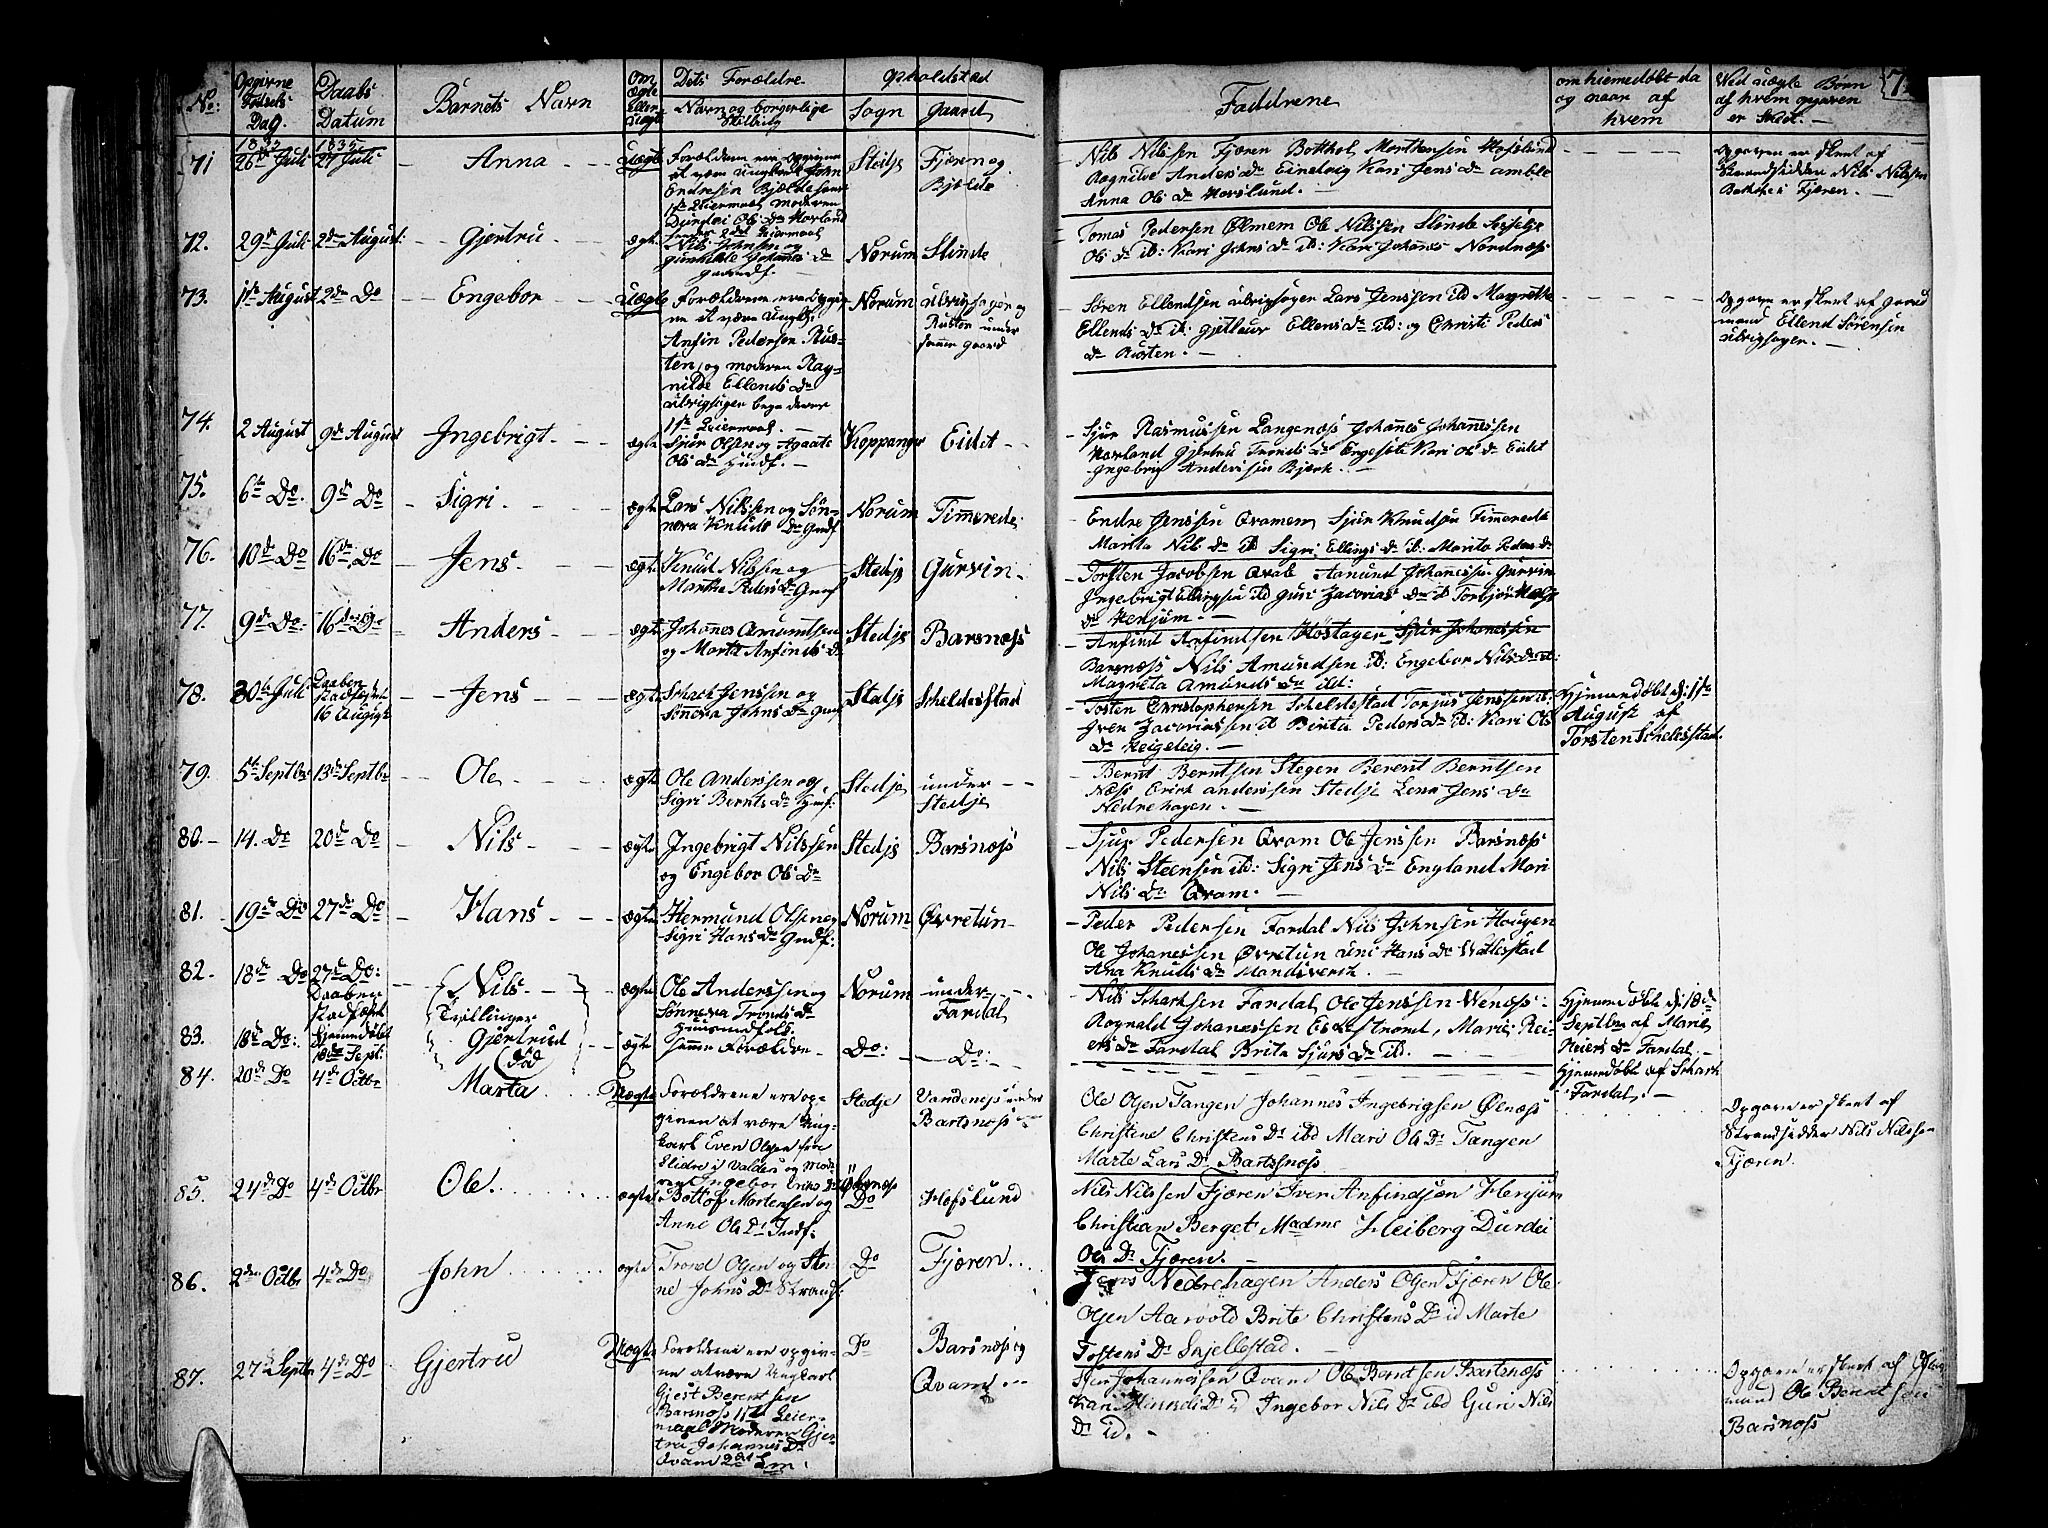 No:
Opgivne
Fødsels
Dag.
Daabs
Datum
Barnets Navn
Om
ægte
Eller
Uægte
Dets Forældre
Navn og borgerlige
Stilling
Opholdsted
Sogn
Gaard
Faddrene
om hiemedøbt da
og naar af
hvem
Ved uægte Børn
af hvem opgaven
er skeet. —
1835
1835
71
26de Juli
27 Juli
Anna
Uægte
Forældrene ere opgivne
at være Ungkarl John
Endresen Bjælde hans
1ste Leiermaal moderen
Durdei Ols Dr
Stedje
Fjæren og
Bjelde
Nils Nilssen Fjæren Botholf Morthensen Hofslund
Ragnilde Anders Dr Eindrig Kari Jens Dr amble
Anna Ols Dr Hofslund. —
Opgaven er skeet af
Strandsidder Nils Nilssen
Fjæren. —
72.
29de Juli
2den August
Gjertru
ægte
Nils Johnsen og
Gunhilde Johannes Dr
gaardf. —
Norum
Slinde
Tomas Pedersen Ølmem Ole Nilssen Slinde
Ols Dr ib: Kari Johns Dr ib: Kari Johanes Nordnæss
73.
1ste August
2den Do
Engebor
Uægte
Forældrene ere opgiv
ne at være Ungk:
Anfin Pedersen Rus-
ten, og moderen Rag-
nilde Ellends Dr
begge deres
1ste Leiermaal. —
Norum
og
Rusten under
samme gaard
Søren Ellendsen Lars Jenssen ib Magrethe
Ellends Dr ib: Ellens Dr ib: og Christi Peders
Dr Rusten. —
Opgaven er skeet af gaard
mand Ellend Sørensen
74.
2 August
9de August
Ingebrigt
ægte
Sjur Olsen og Agaate
Ols Dr Huusf. —
Koppanger
Eidet
Sjur Rasmussen Langenæss Johanes Johanessen
Gjertru Tronds Dr Engesete Kari Ols Dr Eidet
Ingebrig Anderssen Bjørk. —
75.
6te Do.
9de Do
Sigri
ægte
Lars Nilssen og Søn-
neva Knuds Dr Grdf
Norum
Timrede
Endre Jenssen Qvamem Sjur Knudsen Timrede
Marita Nils Dr ib Sigri Ellings Dr ib: Marita Peders Dr
76.
10de Do
16de Do
Jens
ægte
Knud Nilssen og
Martha Peders Dr Grdf
Stedje
Gurvin
Torsten Jacobsen Qvale Aamund Johannessen Gurvin
Ingebrigt Ellingsen ib Guri Zacorias Dr ib Torbjør
Dr Henjum. —
77.
9de Do.
16de Do
Anders
ægte
Johanes Amundsen
og Marta Anfinds Dr
Stedje
Barsnæss
Anfind Anfindssen Høstager Sjur Johanessen
Barsnæss Nils Amundsen ib: Engebor Nils Dr ib:
Magreta Amunds Dr ib:
78.
30te Juli
Daaben
stadfæstet
16 August
Jens
ægte
Schack Jenssen og
Sønneva Johns Dr Grdf
Stedje
Scheldestad
Tosten Christophersen Scheldestad Torjus Jenssen ib:
Iver Zacoriassen ib Birita Peders Dr ib: Kari Ols
Dr Heigeleig. —
Hjemmedøbt d: 1ste
August af
Torsten Scheldestad.
79.
5te Septbr
13de Septbr
Ole
ægte
Ole Anderssen og
Sigri Bernts Dr Husf:
Stedje
under
Stedje
Bernt Berntsen Stegen Berent Berntsen
Næss Erich anderssen Stedje Lena Jens Dr
Nedrehagen. —
80.
14. Do
20de Do
Nils
ægte
Ingebrigt Nilssen
og Engebor Ols Dr
Stedje
Barsnæss
Sjur Pedersen Qvam Ole Jenssen Barsnæss
Nils Steensen ib: Sigri Jens Dr England Mari
Nils Dr Qvam. —
81.
19de Do
27de Do
Hans
ægte
Hermund Olsen og
Sigri Hans Dr Grdf:
Norum
Øvretun
Peder Pedersen Fardal Nils Johnsen Haugen
Ole Johanessen Øvretun Uni Hans Dr Wallestad
Ana Knuds Dr Mandsverk. —
82.
18de Do
27de Do:
Daaben
stadfæst
Nils
Tvillinger
ægte
Ole Anderssen og
Sønneva Tronds Dr
Huusmdfolk.
Norum
under
Fardal
Nils Schacksen Fardal Ole Jenssen Wenæss
Rognald Johanessen Eslestrand, Marie Rei-
ers Dr Fardal Brita Sjurs Dr ib. —
Hjemmedøbt d: 18de
Septbr af Marie
Reiers Dr Fardal. —
83.
18de Do:
Hjemmedøbt
18de Sept:
Gjertrud
(død
ægte
samme Forældre —
Do:
Do:
Hjemmedøbt af Schack
Fardal. —
84.
20de Do
4de Octbr
Marta
Uægte
Forældrene ere op-
given at være Ung-
karl Even Olsen fra
Slidre i Valders og Mod-
eren Ingebor Eriks Dr
Stedje
under
Bartsnæss
Ole Olsen Tangen Johannes Ingebrigsen Ølnæss
Christene Christens Dr ibd Mari Ols Dr Tangen
Marte Lars Dr Bartsnæss
Opgaven er skeet af
Strandsidder Nils Nilssen
Fjæren.
85.
24de Do
4de Octbr
Ole
ægte
Bottolf Mortensen og
Anne Ols Dr Indf.
Do
Hofslund
Nils Nilssen Fjæren Iver Anfindsøn Henjum
Christian Berget Madme Heiberg Durdei
Ols Dr Fjæren. —
86.
2den Octbr
4de Do
John
ægte
Trond Olsen og
Johns Dr Strandf.
Do
Fjæren
Jens Nedrehagen Anders Olsen Fjæren Ole
Olsen Aarvold Brite Christens Dr id Marte
Tostens Dr Skjellestad. —
87.
27de Septbr
4de Do
Gjertru
Uægte
Forældrene ere opgiv-
ne at være Ungkarl
Gjest Berentsen
Barsnæss 1ste Leier-
maal Moderen Gjer-
tru Johannes Dr
Qvam 2det Lm.
Do
Barsnæss og
Qvam
Sten Johannessen Qvam Ole Berntsen Bartsnæss
Kari Dr id Ingebor Nils Dr ibd Guri Nils
Dr id. —
Opgaven er skeet af
mand Ole Berentsen
Barsnæss